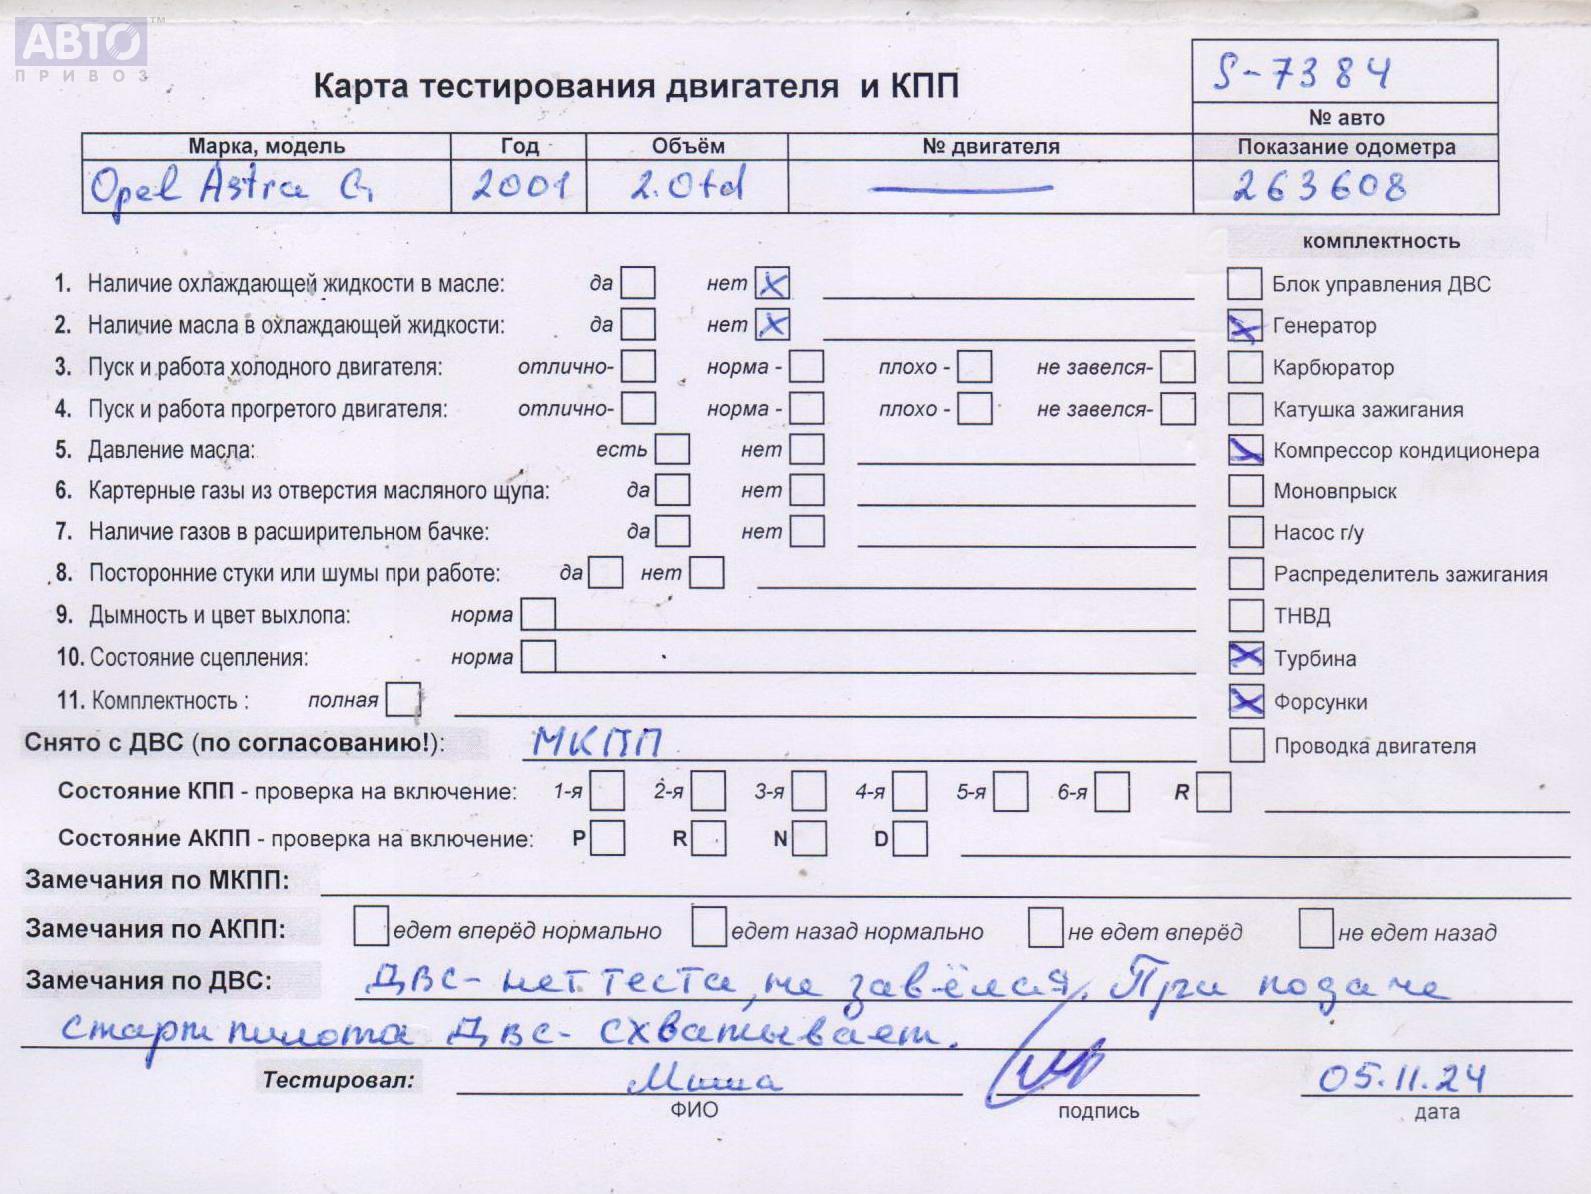 АВТО™
ПРИВОЗ
Карта тестирования двигателя и КПП
S-7384
№ авто
Марка, модель Год Объём № двигателя Показание одометра
Opel Astra G 2001 2.0td — 263608
комплектность
1. Наличие охлаждающей жидкости в масле: да нет X Блок управления ДВС
2. Наличие масла в охлаждающей жидкости: да нет X X Генератор
3. Пуск и работа холодного двигателя: отлично- норма - плохо - не завелся- Карбюратор
4. Пуск и работа прогретого двигателя: отлично- норма - плохо - не завелся- Катушка зажигания
5. Давление масла: есть нет X Компрессор кондиционера
6. Картерные газы из отверстия масляного щупа: да нет Моновпрыск
7. Наличие газов в расширительном бачке: да нет Насос г/у
8. Посторонние стуки или шумы при работе: да нет Распределитель зажигания
9. Дымность и цвет выхлопа: норма ТНВД
10. Состояние сцепления: норма X Турбина
11. Комплектность : полная X Форсунки
Снято с ДВС (по согласованию!): МКПП Проводка двигателя
Состояние КПП - проверка на включение: 1-я 2-я 3-я 4-я 5-я 6-я R
Состояние АКПП - проверка на включение: P R N D
Замечания по МКПП:
Замечания по АКПП: едет вперёд нормально едет назад нормально не едет вперёд не едет назад
Замечания по ДВС: ДВС- нет теста, не завёлся. При подаче
старт пилота ДВС- схватывает.
Тестировал: Миша 05.11.24
ФИО подпись дата